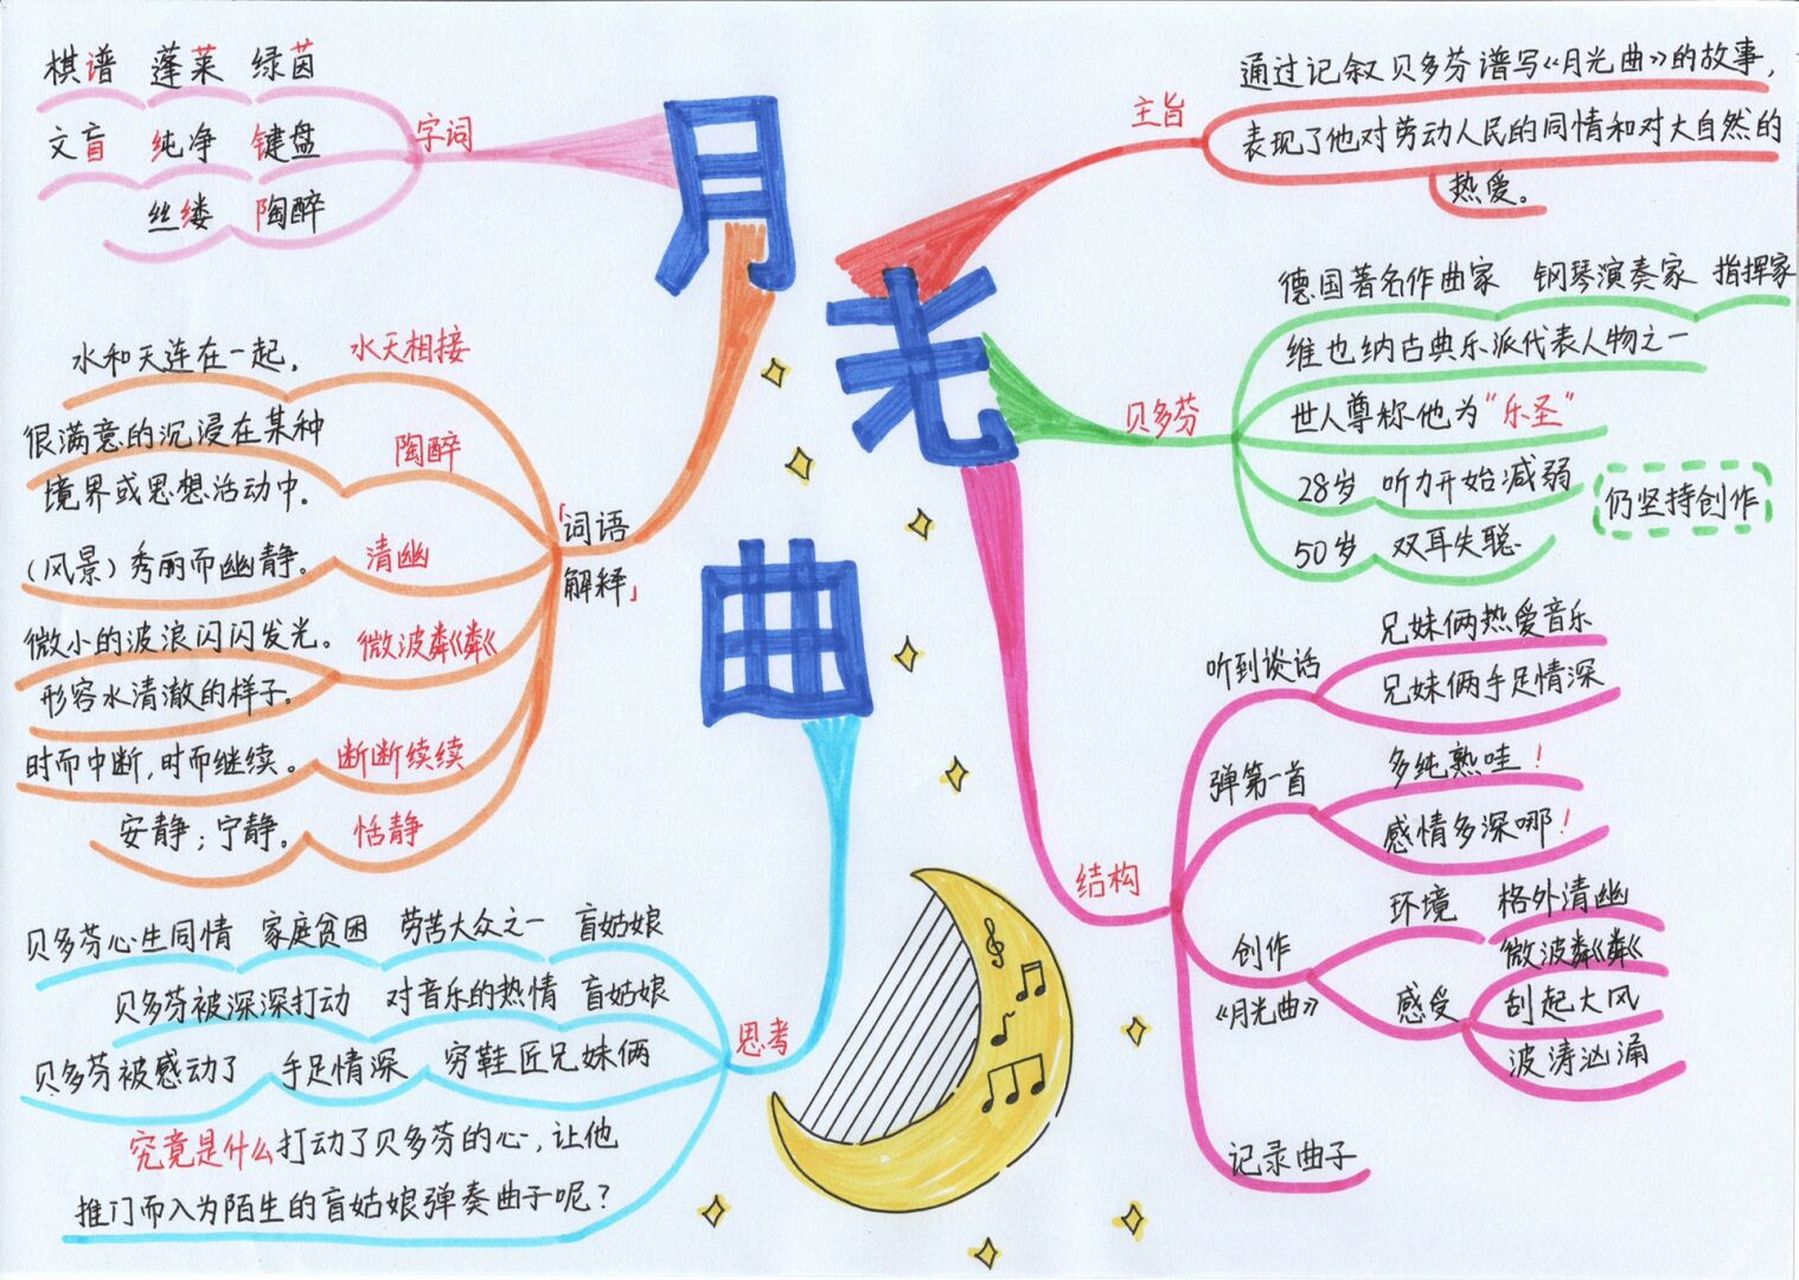 月光曲
字词
棋谱 蓬莱 绿茵
文盲 纯净 键盘
丝缕 陶醉
「词语
解释」
水和天连在一起， 水天相接
很满意的沉浸在某种
境界或思想活动中。
陶醉
（风景）秀丽而幽静。 清幽
微小的波浪闪闪发光。 微波粼粼
形容水清澈的样子。
时而中断，时而继续。 断断续续
安静；宁静。 恬静
思考
贝多芬心生同情 家庭贫困 劳苦大众之一 盲姑娘
贝多芬被深深打动 对音乐的热情 盲姑娘
贝多芬被感动了 手足情深 穷鞋匠兄妹俩
究竟是什么打动了贝多芬的心，让他
推门而入为陌生的盲姑娘弹奏曲子呢？
主旨
通过记叙贝多芬谱写《月光曲》的故事，
表现了他对劳动人民的同情和对大自然的
热爱。
贝多芬
德国著名作曲家 钢琴演奏家 指挥家
维也纳古典乐派代表人物之一
世人尊称他为“乐圣”
28岁 听力开始减弱
50岁 双耳失聪
仍坚持创作
结构
听到谈话
兄妹俩热爱音乐
兄妹俩手足情深
弹第一首
多纯熟哇！
感情多深哪！
创作
《月光曲》
环境 格外清幽
感受
微波粼粼
刮起大风
波涛汹涌
记录曲子